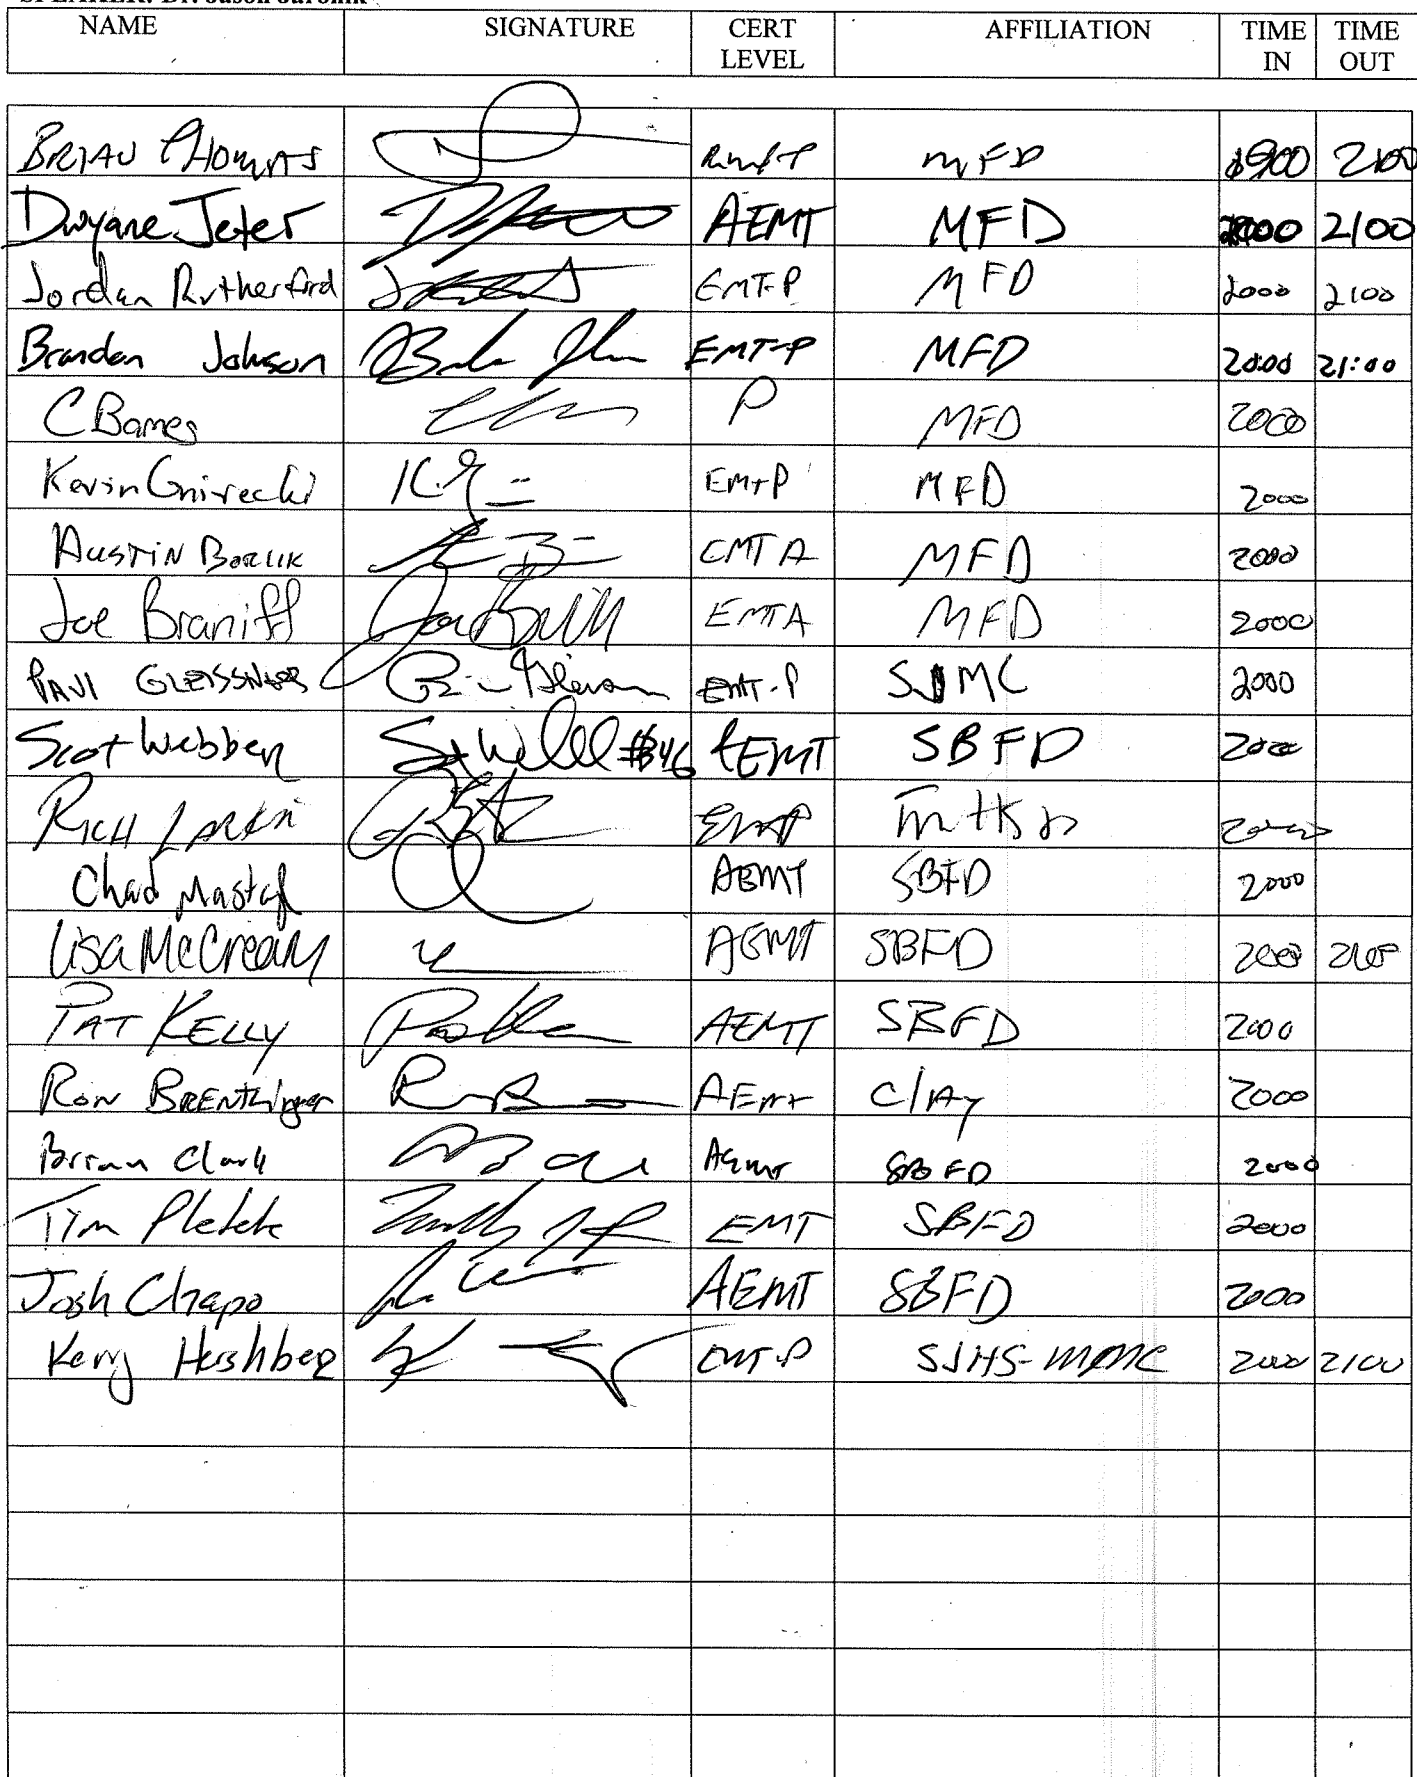 SPEAKER: Dr. Jason
NAME SIGNATURE CERT LEVEL AFFILIATION TIME IN TIME OUT
BRIAN THOMAS MFD 2100
Dwyane Jeter AEMT MFD 2000 2100
Jordan Rutherford EMT-P MFD 2000 2100
Brandon Johnson EMT-P MFD 2000 21:00
C Barnes P MFD 2000
Kevin Gnirecki EMTP MFD 2000
AUSTIN BORLIK EMTA MFD 2000
Joe Braniff EMTA MFD 2000
PAUL GLEISSNER EMT-P SJMC 2000
Scot Webber #346 AEMT SBFD 2000
RICH LARKIN EMTP 2000
Chad AEMT SBFD 2000
Lisa McCreary AEMT SBFD 2000 2100
PAT KELLY AEMT SBFD 2000
RON BRENTlinger AEMT CLAY 2000
Brian Clark AEMT SBFD 2000
Tim EMT SBFD 2000
Josh Chapo AEMT SBFD 2000
Kerry Hershberg EMT-P SJHS-MMC 2000 2100